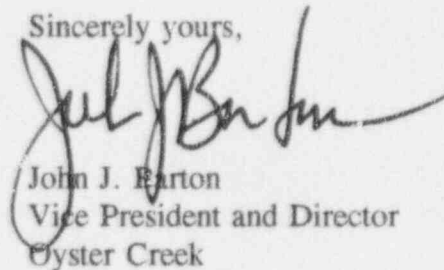 Sincerely yours,
John J. Barton
Vice President and Director
Oyster Creek